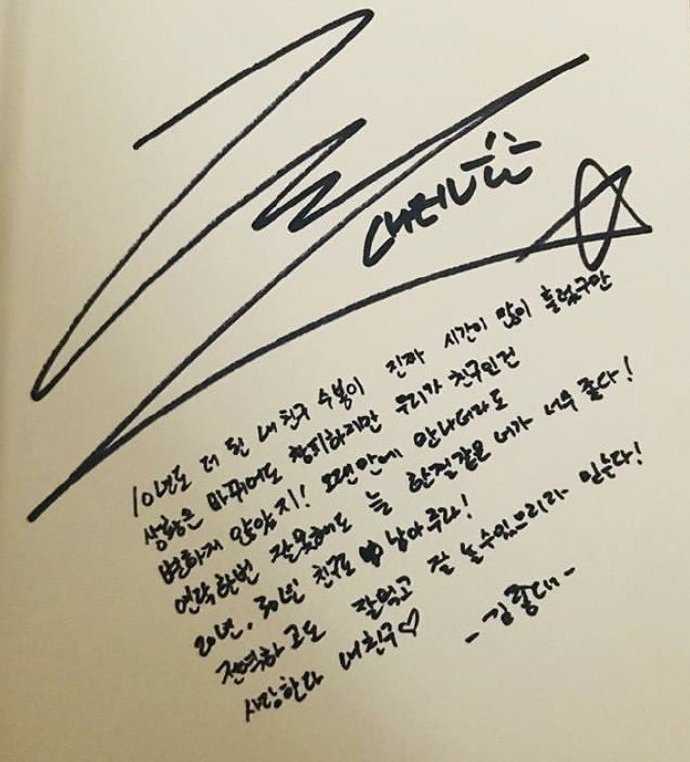 10년도 더 된 내 친구 수봉이 진짜 시간이 많이 흘렀구만
상황은 바뀌어도 창피하지만 우리가 친구인건
변하지 않았지! 오랜만에 만나더라도
연락한번 잘못해도 늘 한결같은 네가 너무 좋다!
20년, 30년 친구로 남아주라!
전역하고도 잘먹고 잘 놀수있으리라 믿는다!
사랑한다 내친구♡
-김종대-